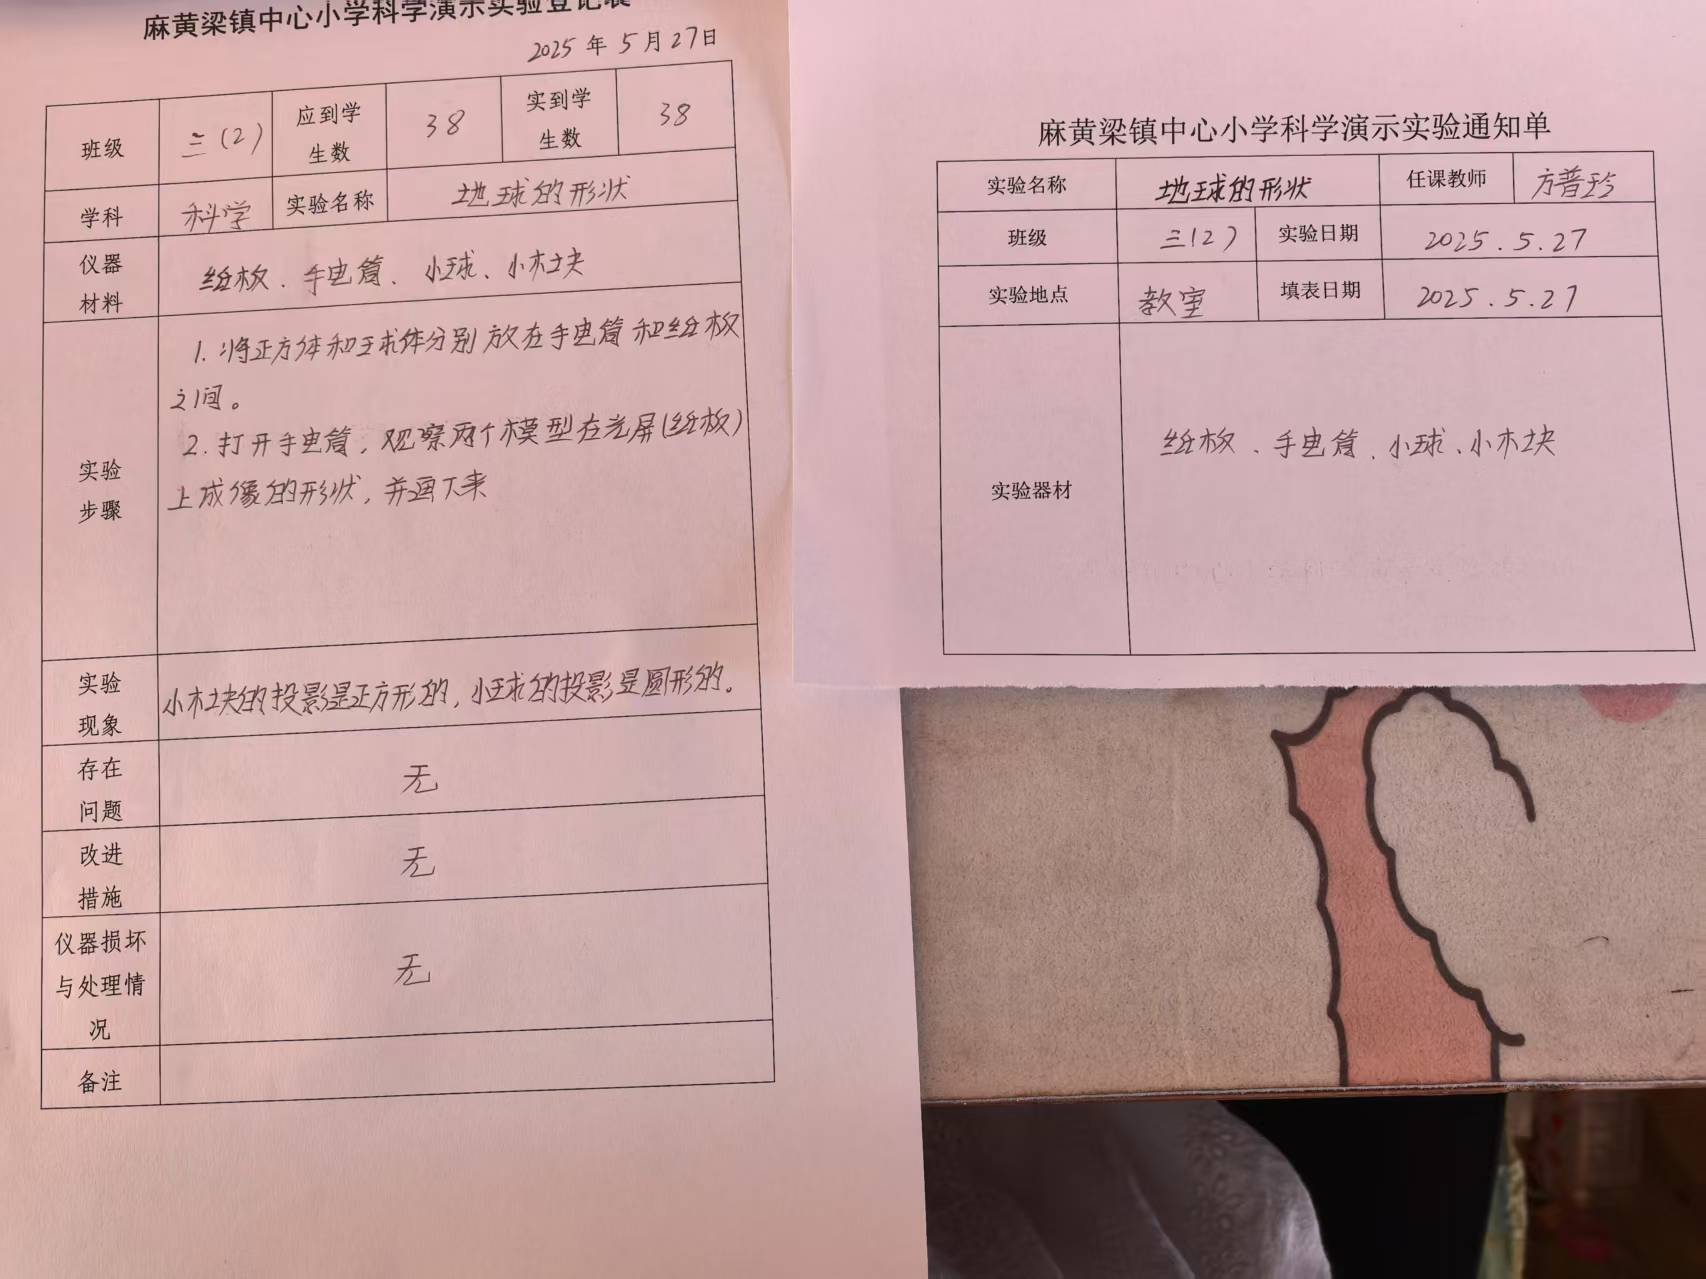 麻黄梁镇中心小学科学演示实验登记表
2025 年 5 月 27日
班级 三(2) 应到学生数 38 实到学生数 38
学科 科学 实验名称 地球的形状
仪器材料 纸板、手电筒、小球、小木块
实验步骤
1. 将正方体和球体分别放在手电筒和纸板
之间。
2. 打开手电筒，观察两个模型在光屏(纸板)
上成像的形状，并画下来
实验现象 小木块的投影是正方形的，小球的投影是圆形的。
存在问题 无
改进措施 无
仪器损坏与处理情况 无
备注
麻黄梁镇中心小学科学演示实验通知单
实验名称 地球的形状 任课教师 方普玲
班级 三(2) 实验日期 2025.5.27
实验地点 教室 填表日期 2025.5.27
实验器材 纸板、手电筒、小球、小木块